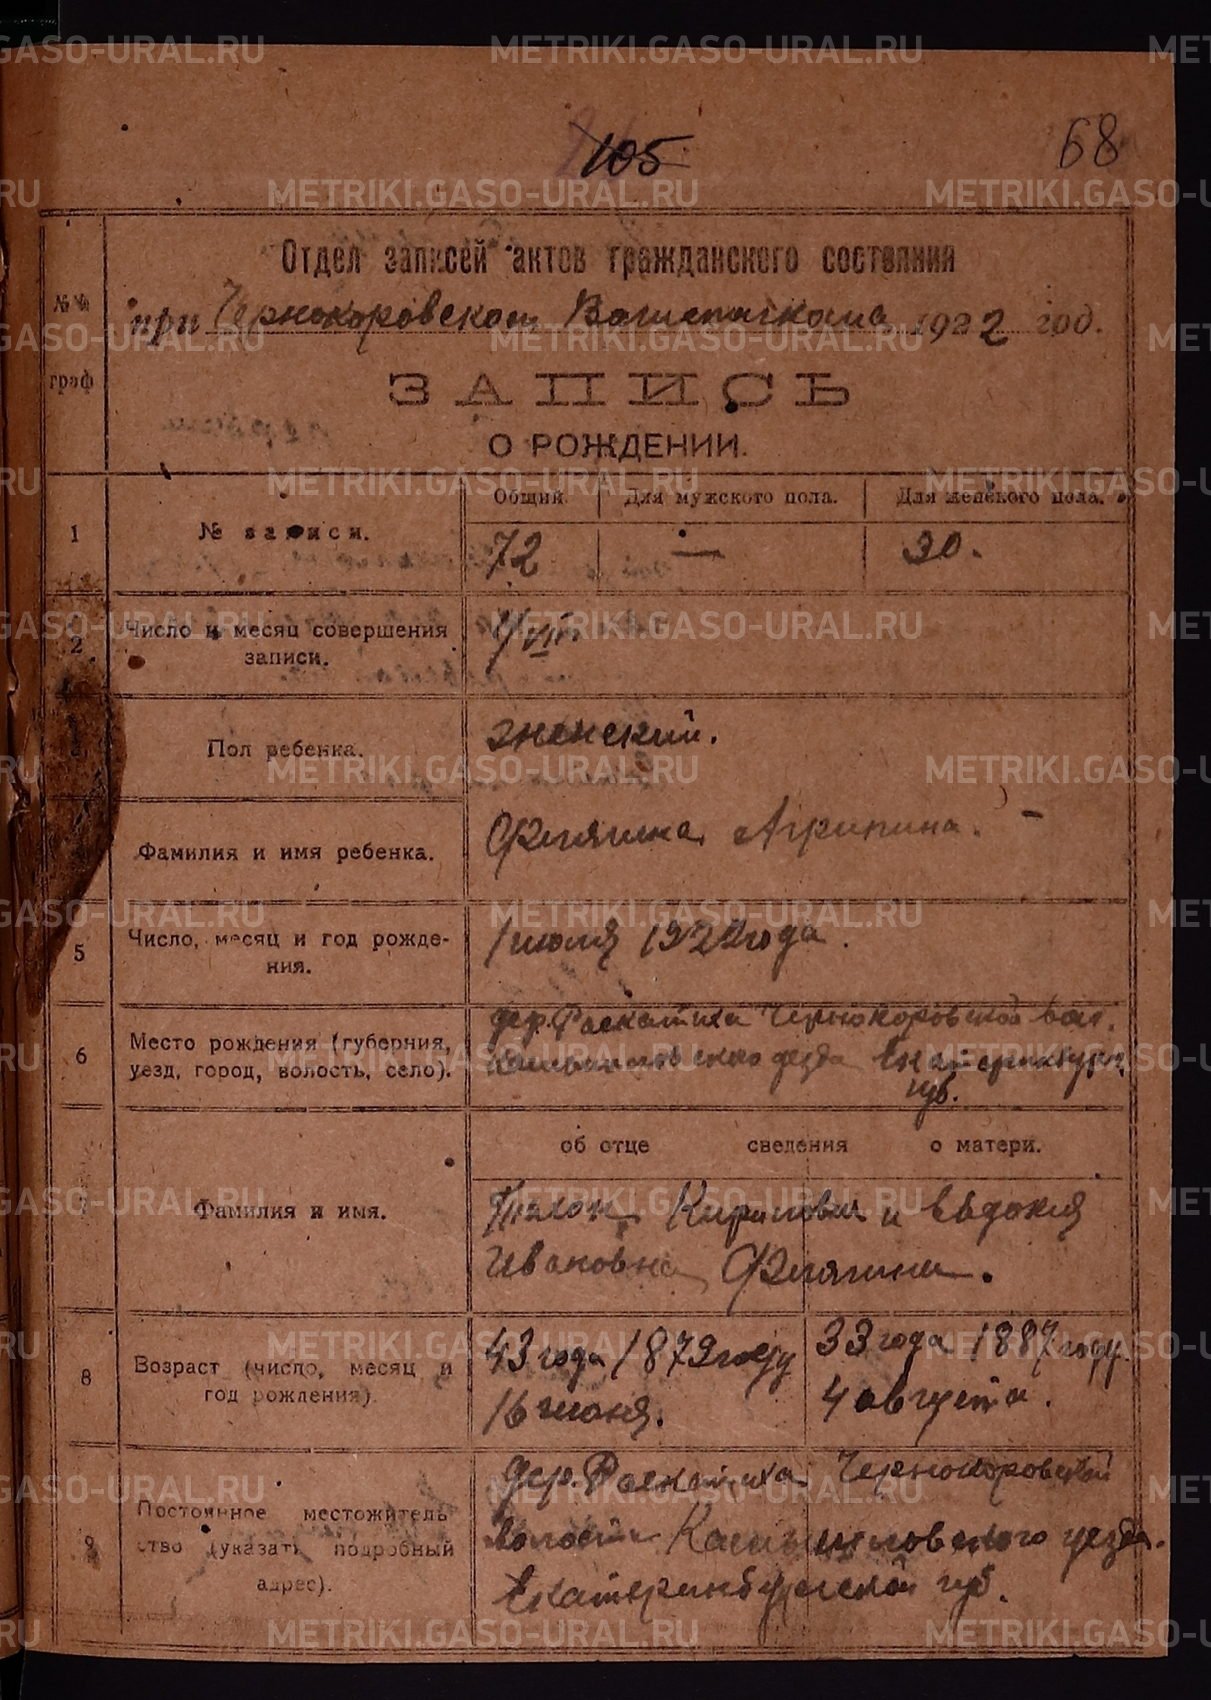 105
68
Отдел записей актов гражданского состояния
№№ граф
при Чернокоровском 1922 год.
ЗАПИСЬ
О РОЖДЕНИИ.
Общий. Для мужского пола. Для женского пола.
1 № записи. 72 — 30.
2 Число и месяц совершения
записи.
VIII
Пол ребенка. женский.
Фамилия и имя ребенка. Агрипина.
5 Число, месяц и год рожде-
ния.
1 июля 1922 года.
6 Место рождения (губерния,
уезд, город, волость, село).
дер. Раскатиха Чернокоровской вол.
уезда Екатеринбург.
губ.
об отце сведения о матери.
7 Фамилия и имя.
Тихон Кирилович и Евдокия
Ивановна
8 Возраст (число, месяц и
год рождения).
43 года 1879 году
16 июня.
33 года 1887 году
4 августа.
9 Постоянное местожитель
ство (указать подробный
адрес).
дер. Раскатиха Чернокоровской
волости Камышловского уезда.
Екатеринбургской губ.
METRIKI.GASO-URAL.RU